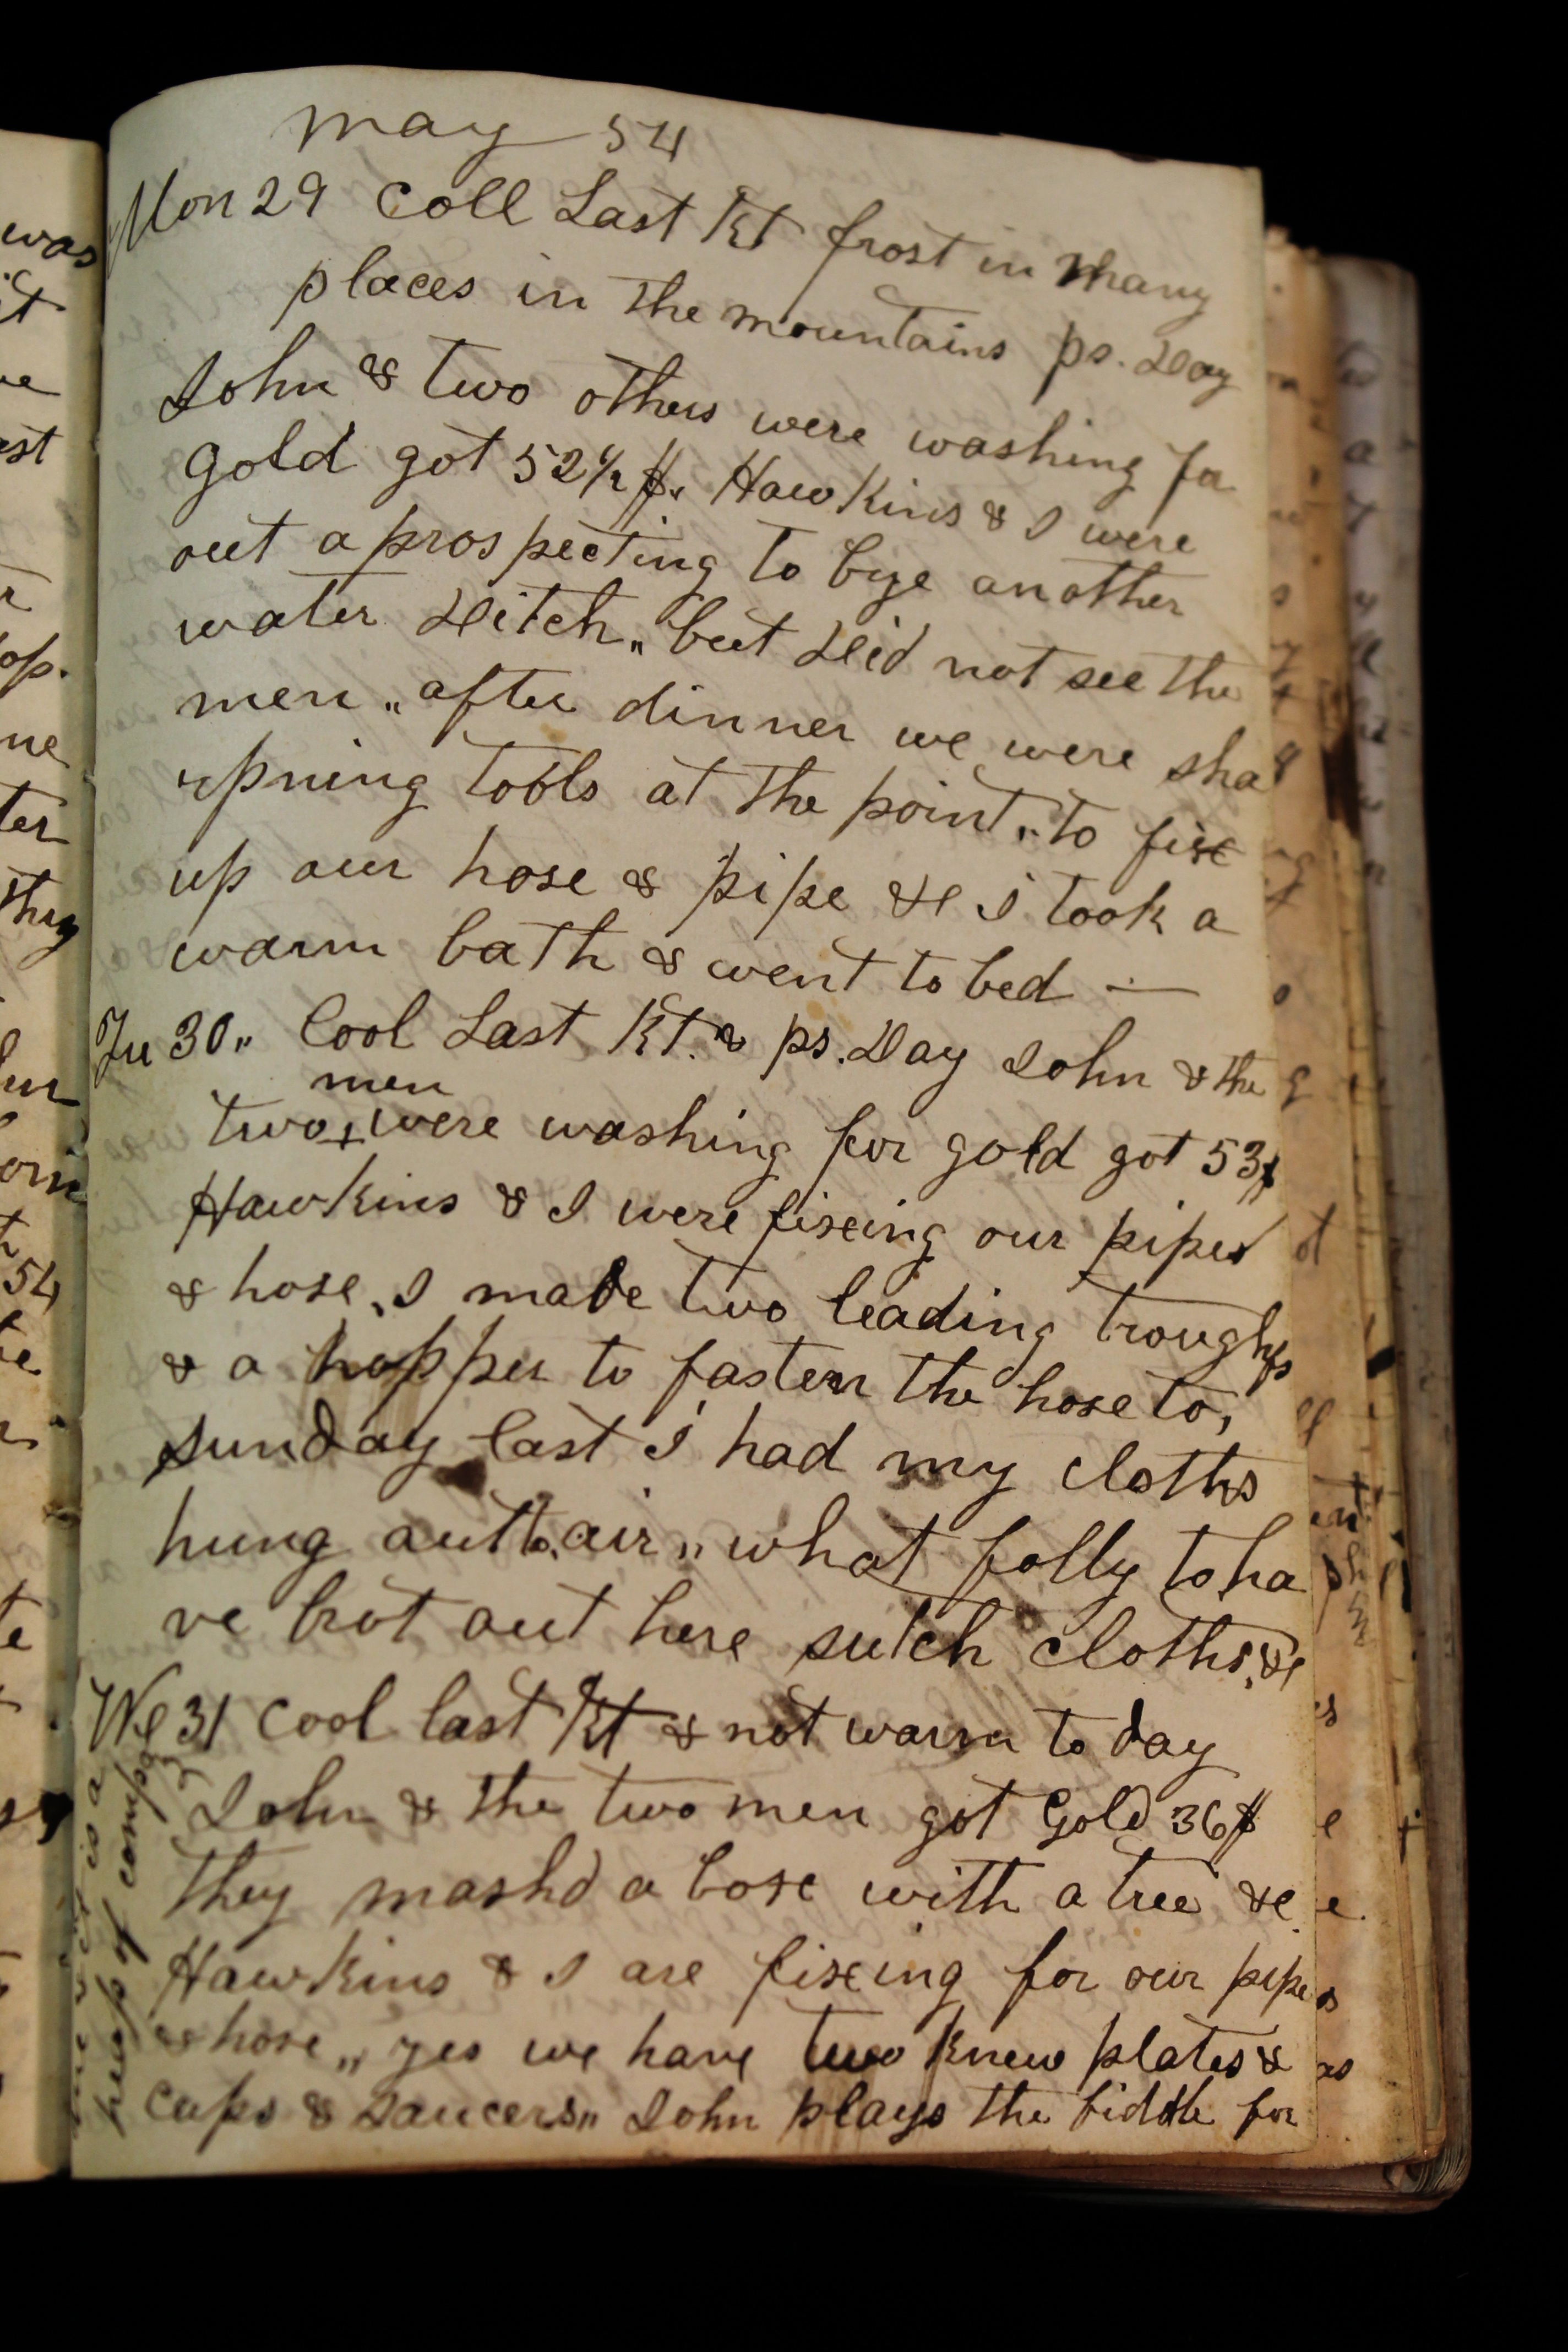 may 54
Mon 29 Coll Last Kt frost in many
places in the mountains ps. Day
John & two others were washing for
gold got 52 1/2 $. Hawkins & I were
out a prospecting to bye another
water Ditch,, but Did not see the
men ,, after dinner we were sha
rpning tools at the point,, to fixe
up our hose & pipe &c I took a
warm bath & went to bed —
Tu 30,, Cool Last Kt. & ps. Day John & the
men
two + were washing for gold got 53$
Hawkins & I were fixeing our pipes
& hose,, I made two leading troughs
& a hopper to fasten the hose to,
sunday last I had my cloths
hung out to air ,, what folly to ha
ve brot out here sutch cloths, &c
We 31 Cool last Kt & not warm to day
John & the two men got Gold 36$
they mashd a boxe with a tree &c.
Hawkins & I are fixeing for our pipes
& hose ,, yes we have two knew plates &
cups & Saucers,, John plays the fiddle for
is a
heap of compa